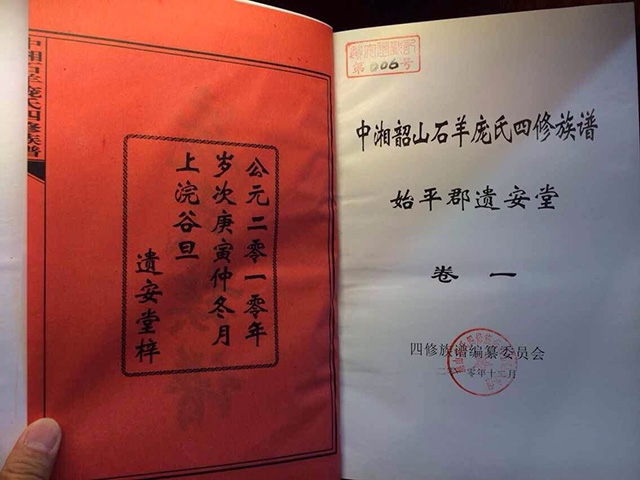 中湘石羊庞氏四修族谱
公元二零一零年
岁次庚寅仲冬月
上浣谷旦
遺安堂梓
第006号
中湘韶山石羊庞氏四修族谱
始平郡遺安堂
卷一
四修族谱编纂委员会
二零一零年十二月